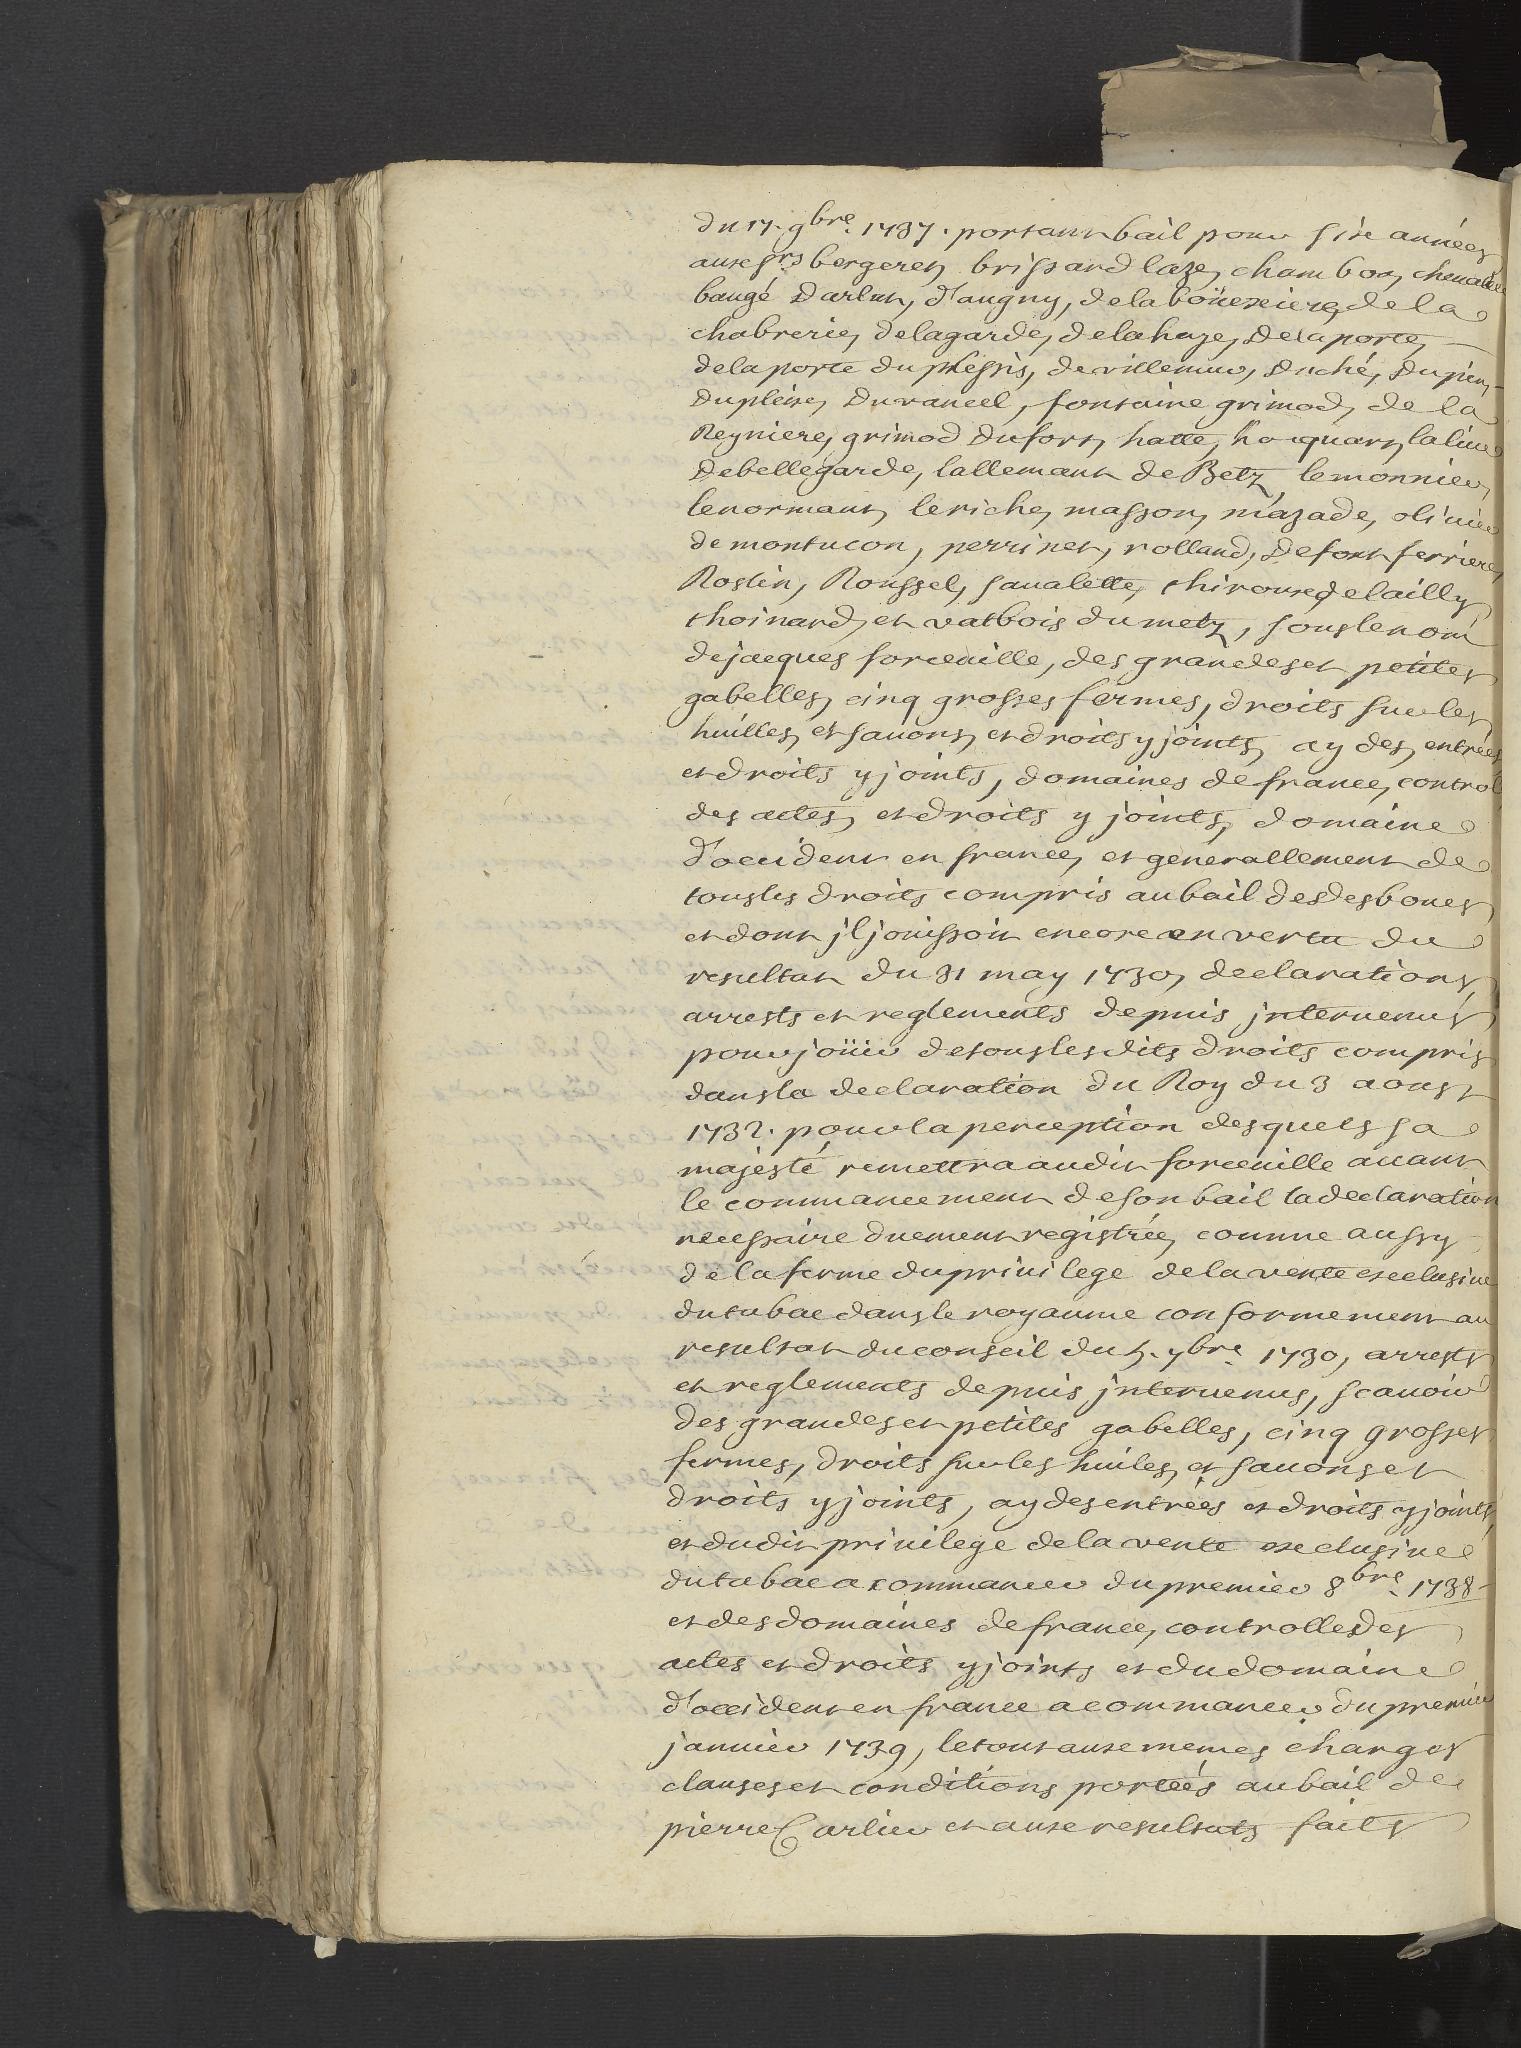 du 17. 9bre. 1737. portant bail pour six années
aux srs bergeret, brissard laze, chambon, chevalier
baugé Darlut, d'augny, delaboüexiere, de la
chabrerie, delagarde, delahaye, delaporte,
delaporte duplessis, devillemur, duché, dupin,
dupleix, Durancel, fontaine grimod, de la
Reyniere, grimod dufort, hatte, hocquart, laliue
debellegarde, lallemant de Betz, lemonnier,
lenormant, leriche, masson, mazade, oliuier
de montucon, perrinet, rolland, defontferriere,
Roslin, Roussel, saualette, thirouxdelailly
thoinard, et vatbois dumetz, sous le nom
dejacques forceuille, des grandes et petites
gabelles, cinq grosses fermes, droits sur les
huilles, et sauons, et droits y joints, aydes, entrées
et droits y joints, domaines de france, control
des actes, et droits y joints, domaine
d'occident en france, et generallement de
tous les droits compris au bail de desboues
et dont jl jouissoit encore en vertu du
resultat du 31 may 1730, declarations,
arrests et reglements depuis jnteruenus
pour joüir de tous les dits droits compris
dans la declaration du Roy du 3 aoust
1732. pour la perception desquels sa
majesté remettra audit forceuille auant
le commancement de son bail la declaration
necessaire duement registrée, comme aussy
de la ferme du priuilege de la vente exclusiue
du tabac dans le royaume conformement au
resultat du conseil du 5. 7bre 1730, arrests
et reglements depuis jnteruenus, scauoir
des grandes et petites gabelles, cinq grosses
fermes, droits sur les huiles, et sauons et
droits y joints, aydes entrées et droits y joints,
et dudit priuilege de la vente exclusiue
du tabac a commancer du premier 8bre. 1738
et des domaines de france, controlles des
actes et droits y joints et du domaine
d'occident en france a commancer du premier
januier 1739, le tout aux memes charges
clauses et conditions portées au bail de
pierre Carlier et aux resultats faits